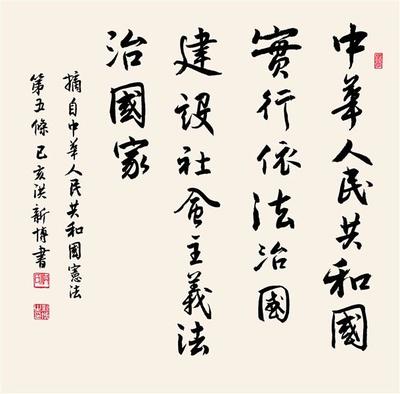 中華人民共和國
實行依法治國
建設社會主義法
治國家
摘自中華人民共和國憲法
第五條 己亥洪新博書